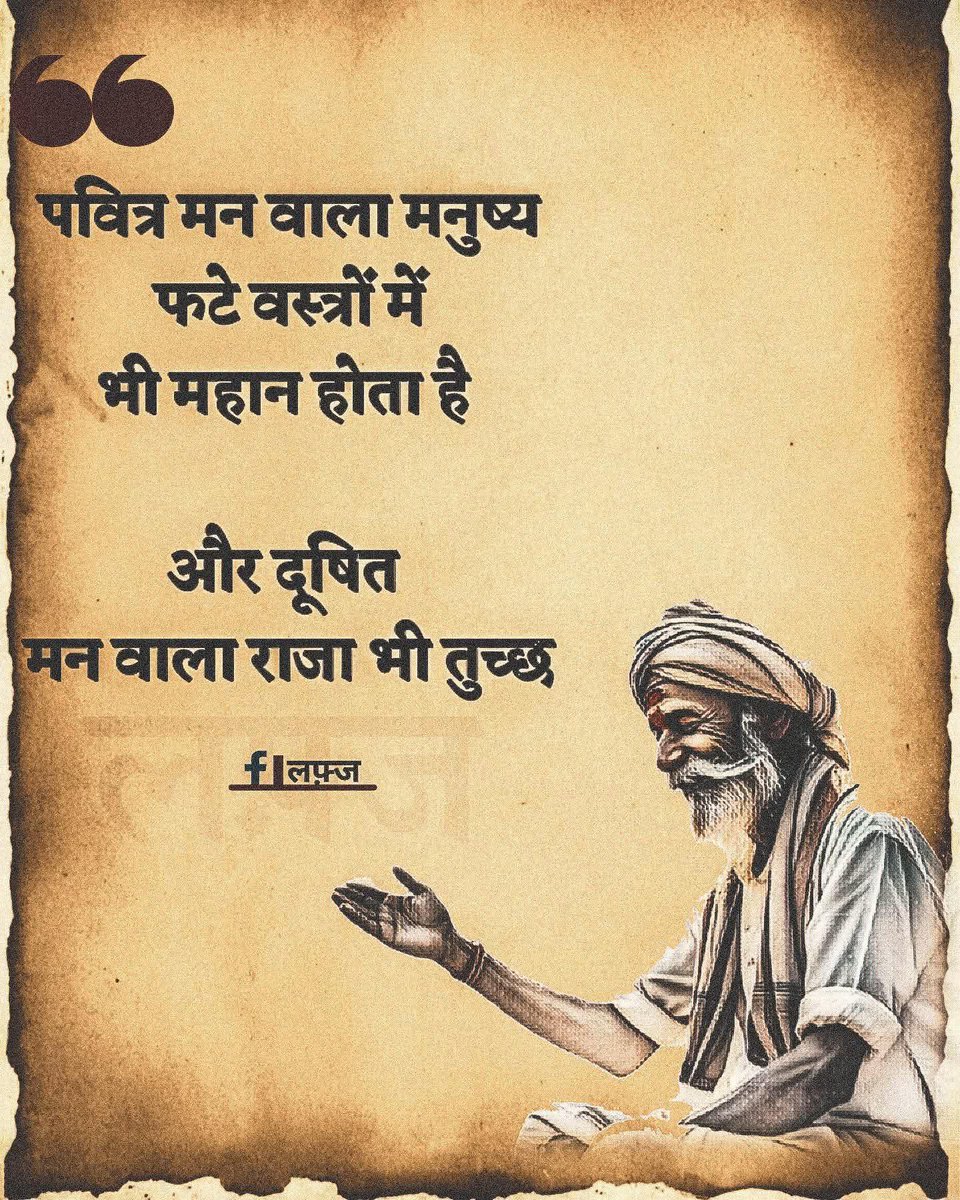 ❝
पवित्र मन वाला मनुष्य
फटे वस्त्रों में
भी महान होता है
और दूषित
मन वाला राजा भी तुच्छ
लफ़्ज
f लफ़्ज